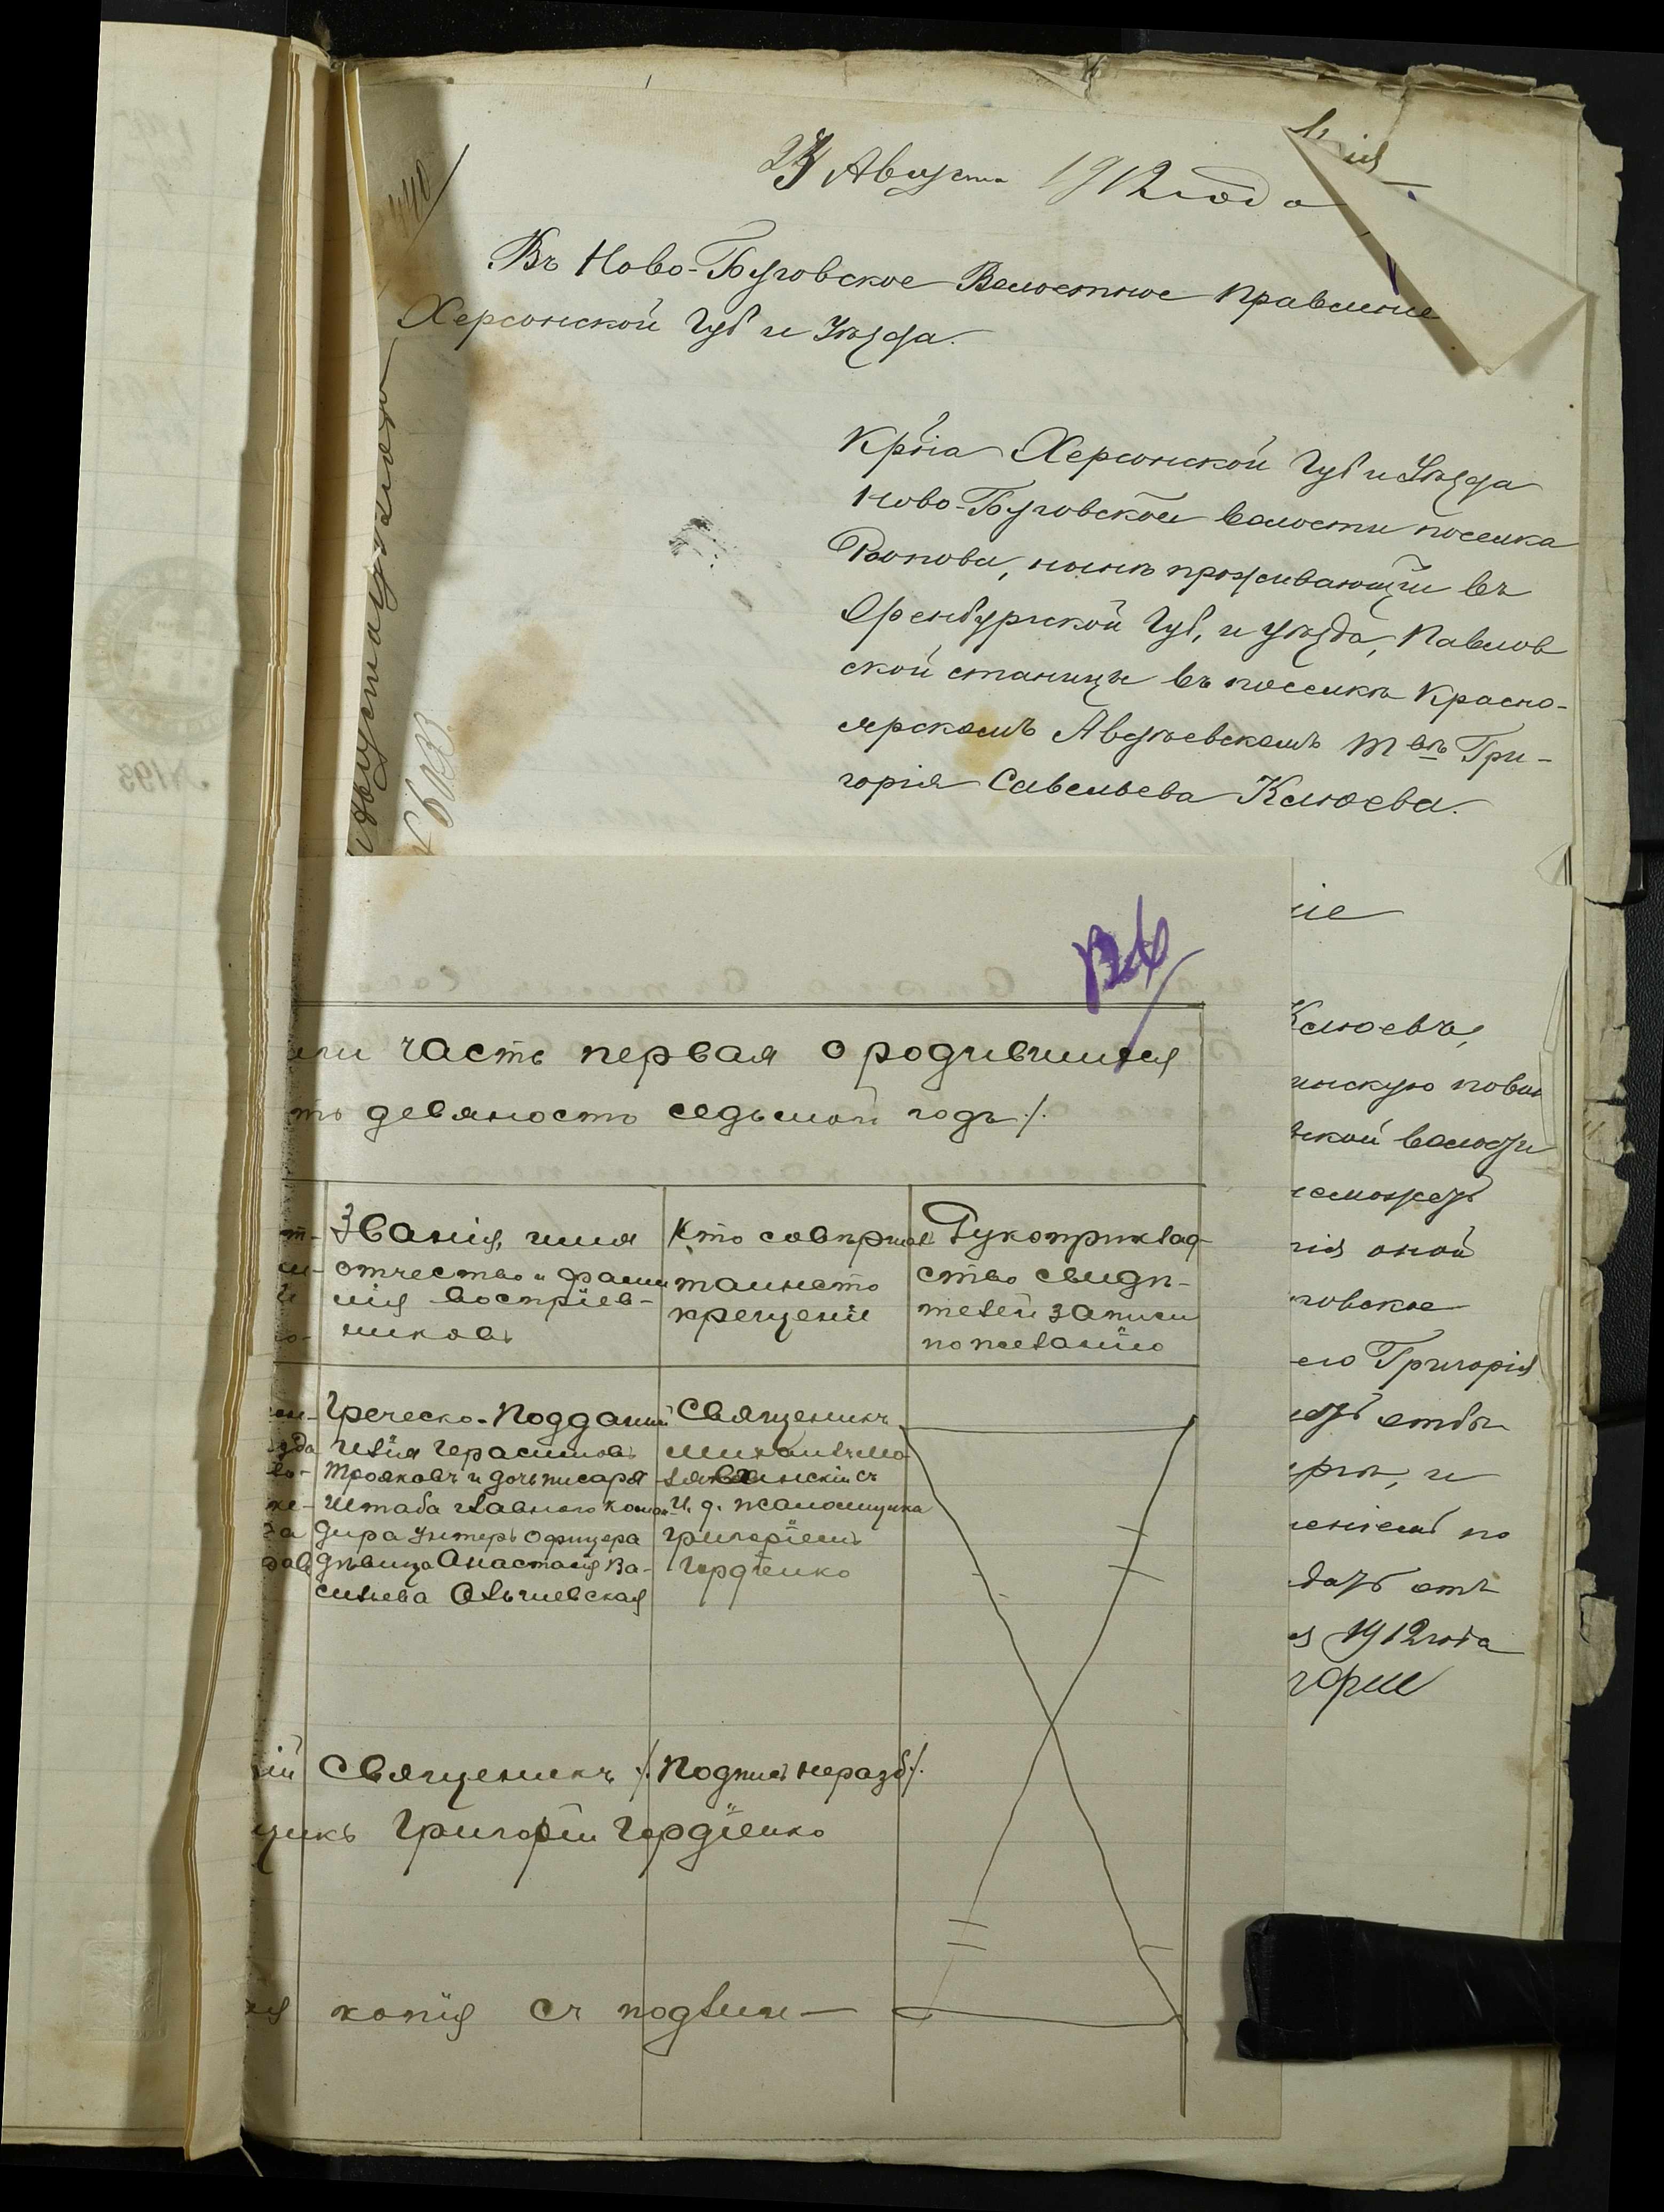 24 Августа 1912 года
440
Въ Ново-Буговское Волостное Правленіе
Херсонской Губ и Уѣзда.
Кр̃на Херсонской Губ и Уѣзда
Ново-Буговской волости поселка
нынѣ проживающій въ
Оренбургской Губ, и уѣзда, Павлов
ской станицы въ поселкѣ Красно-
ярскомъ Авдѣевскомъ Т-вѣ Гри-
горія Савельева Клюева.
іе
Клюевъ,
инскую повин
ской волости
неможетъ
нія оной
говское
его Григорія
етъ отбы
и
еніемъ по
датъ отъ
1912 года
часть первая о родившихся
то девяносто седьмой годъ /.
Званія, имя
отчество и фами
лія воспріем-
никовъ
Кто соверша
таинство
крещеніе
Рукоприклад-
ство свидѣ-
телей записи
по желанію
Греческо-Поддан
Илія Герасимовъ
Трояновъ и дочь писаря
Штаба Главного коман
дира Унтеръ Офицера
дѣвица Анастасія Ва-
сильева Ольшевская
Священникъ
съ
И. д. псаломщика
Григоріемъ
Гордіенко
ій Священникъ /. Подпись неразб /.
щикъ Григорій Гордіенко
ая копія съ подлин—
№193